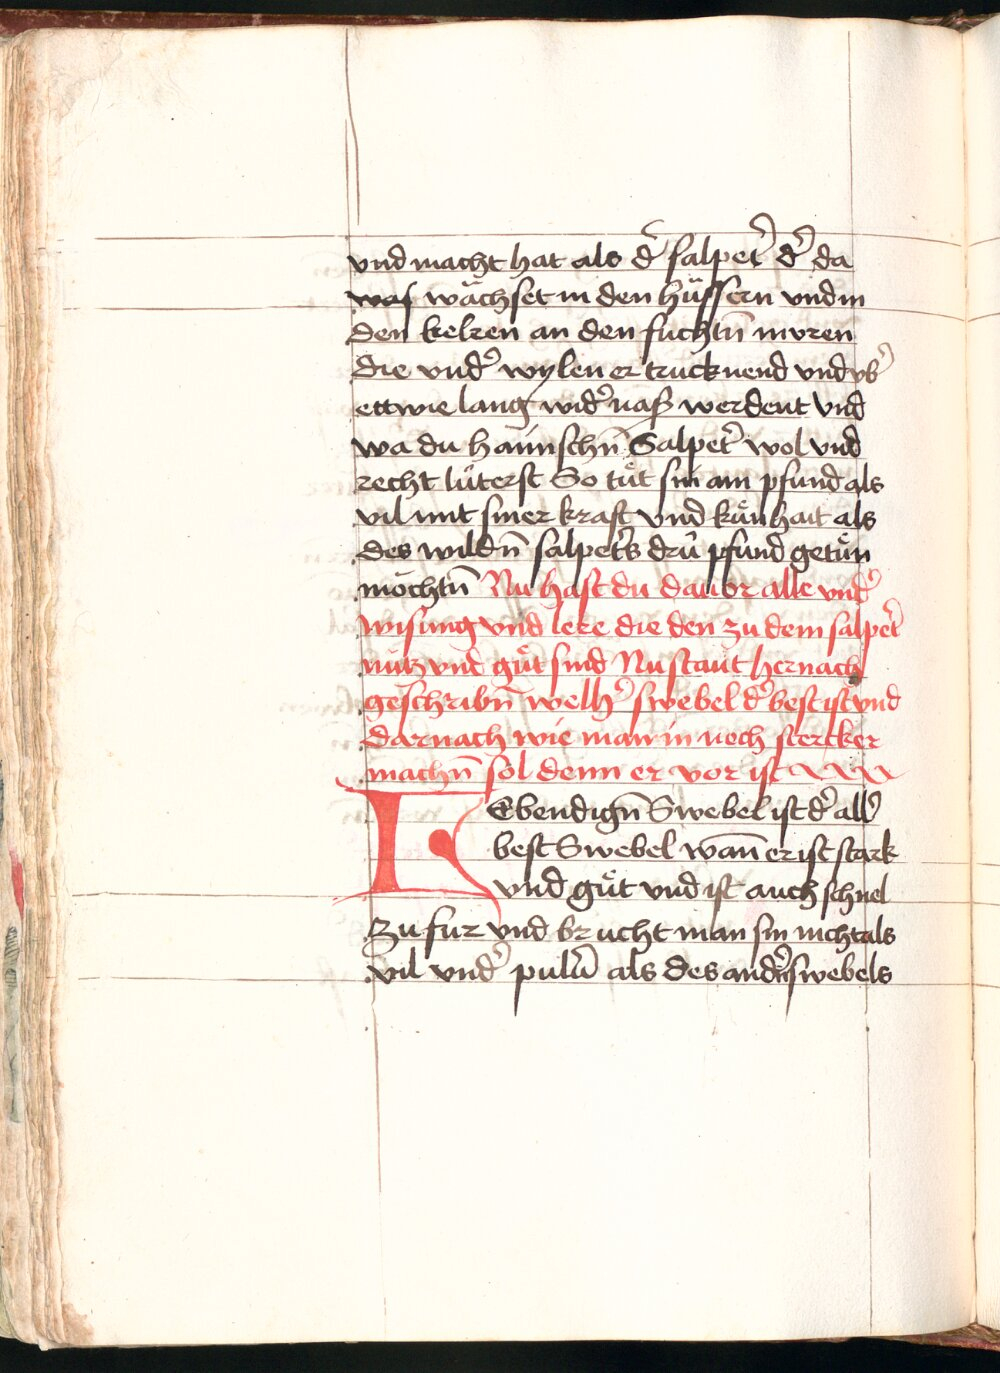 vnd macht hat als d̾ salpet̾ d̾ da
waſ wächset in den hüssern vnd in
den kelren an den fuchtn̄ muren
die vnd̾ wylen er trucknend vnd vb̾
ettwie lang wid̾ naß werdent Vnd
wa du haimschn̄ Salpet̾ wol vnd
recht lüterst So tůt sin ain pfund als
vil mit siner kraft vnd kůnhait als
des wildn̄ salpet̾s drü pfund getůn
möchtn̄ Nu hast du dauor alle vnd̾
wisung vnd lere die den zu dem salpet̾
nütz vnd gůt sind Nu staut hernach
geschribn̄ welh̾ swebel d̾ best ist vnd
darnach wie man in noch stercker
machn̄ sol denn er vor ist
LEbendign̄ Swebel ist d̾ all̾
best Swebel wan̄ er ist stark
vnd gůt vnd ist auch schnel
zu fur vnd brucht man sin nicht als
vil vnd̾ pulu̾ als des andn̾ swebels